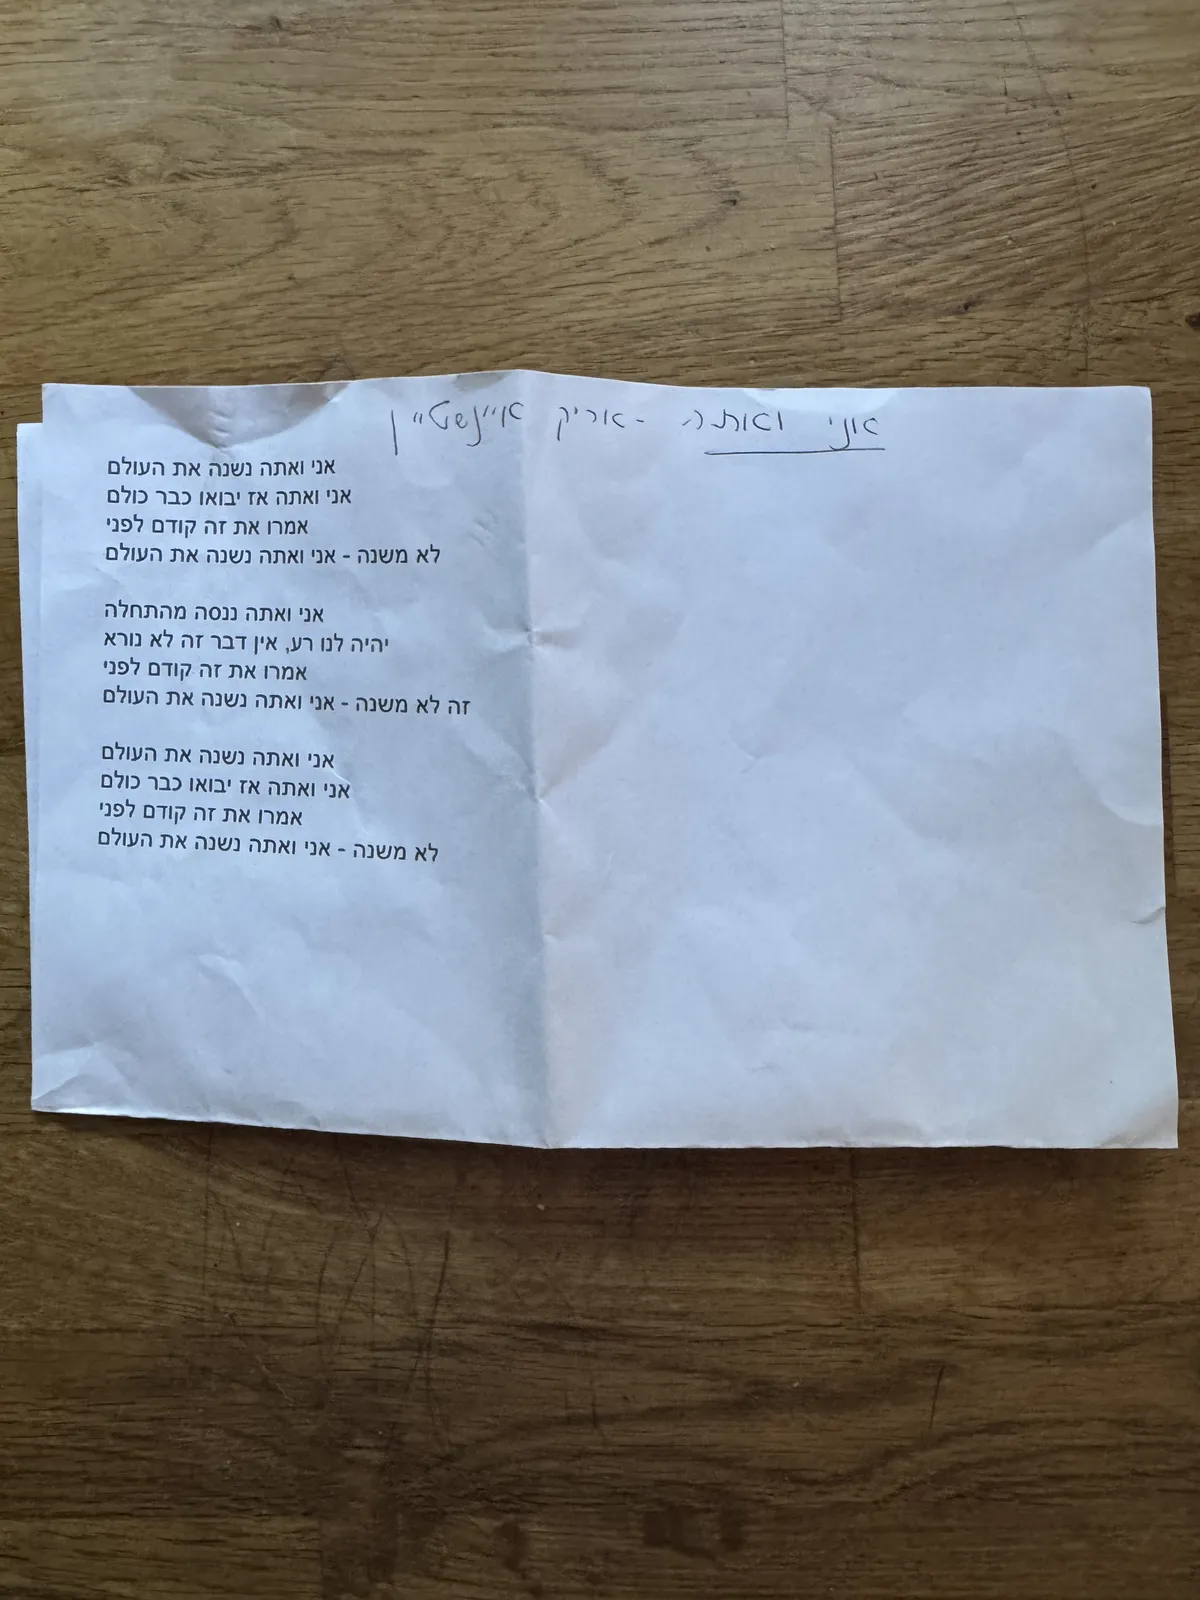 אני ואתה - אריק איינשטיין
אני ואתה נשנה את העולם
אני ואתה אז יבואו כבר כולם
אמרו את זה קודם לפני
לא משנה - אני ואתה נשנה את העולם
אני ואתה ננסה מהתחלה
יהיה לנו רע, אין דבר זה לא נורא
אמרו את זה קודם לפני
זה לא משנה - אני ואתה נשנה את העולם
אני ואתה נשנה את העולם
אני ואתה אז יבואו כבר כולם
אמרו את זה קודם לפני
לא משנה - אני ואתה נשנה את העולם